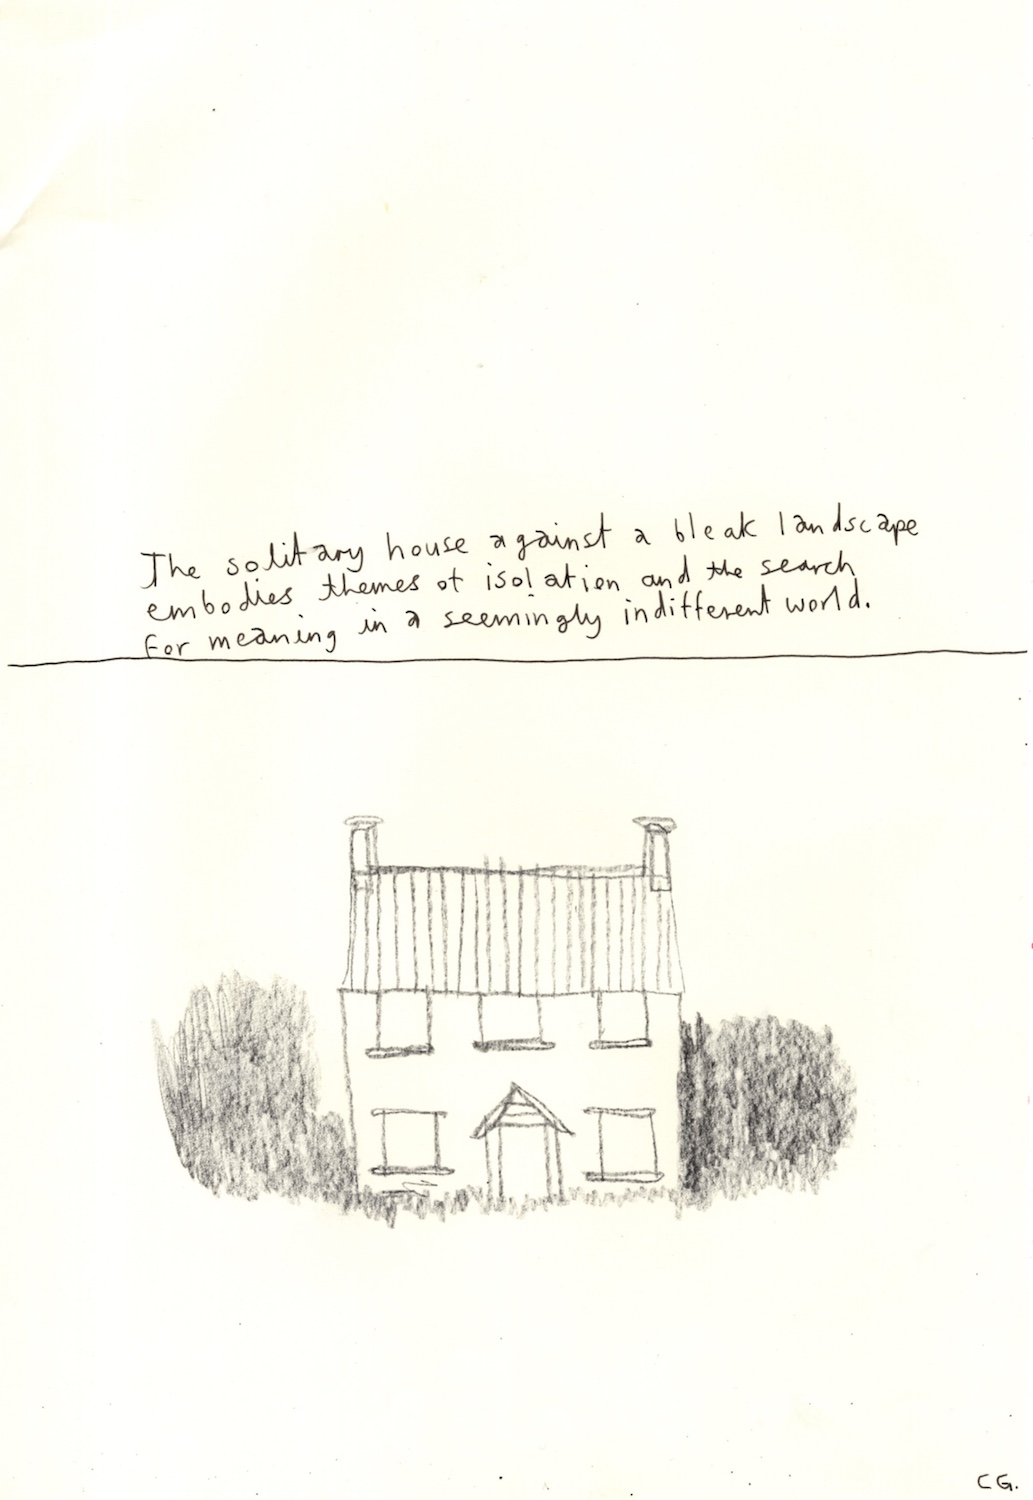 The solitary house against a bleak landscape
embodies themes of isolation and the search
for meaning in a seemingly indifferent world.
CG.